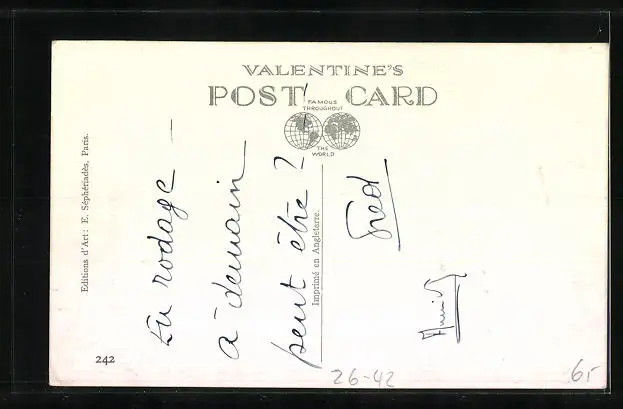 VALENTINE'S
POST CARD
FAMOUS
THROUGHOUT
THE
WORLD
Editions d'Art: E. Séphériadès, Paris.
242
En rodage —
à demain
peut être?
Imprimé en Angleterre.
Fred
26-42
6,-